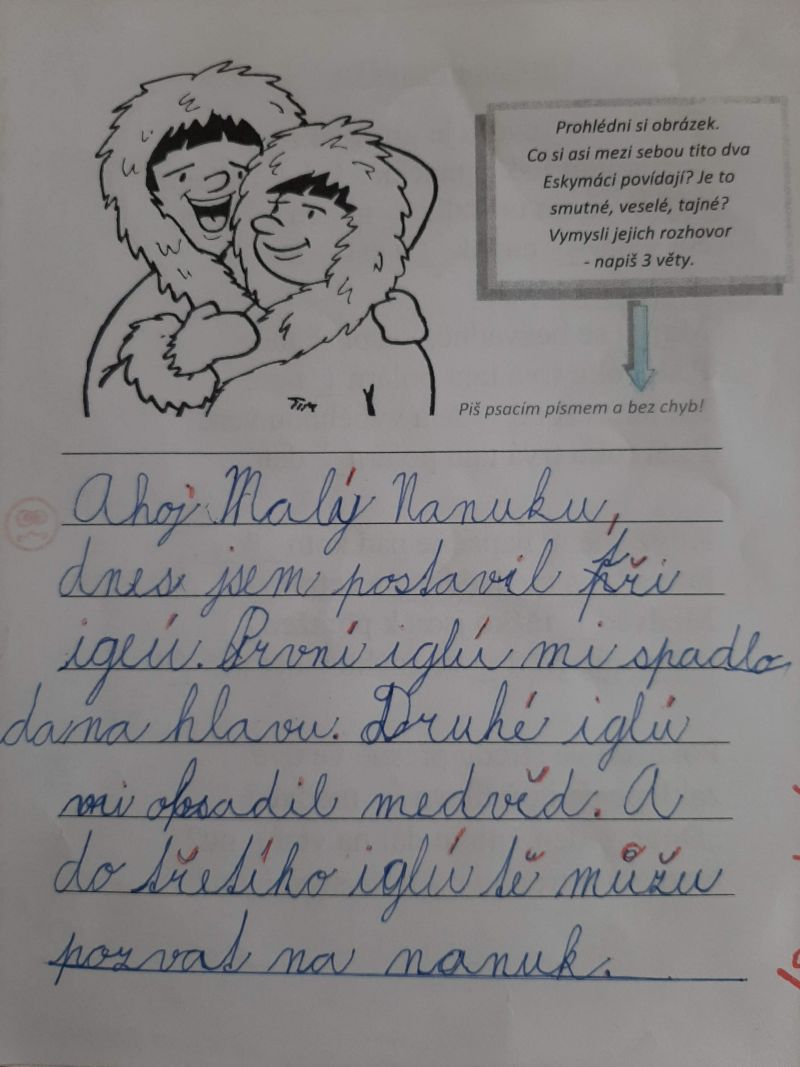 Prohlédni si obrázek.
Co si asi mezi sebou tito dva
Eskymáci povídají? Je to
smutné, veselé, tajné?
Vymysli jejich rozhovor
- napiš 3 věty.
Piš psacím písmem a bez chyb!
Tim
Ahoj Malý Nanuku,
dnes jsem postavil tři
iglú. První iglú mi spadlo
na hlavu. Druhé iglú
mi obsadil medvěd. A
do třetího iglú tě můžu
pozvat na nanuk.